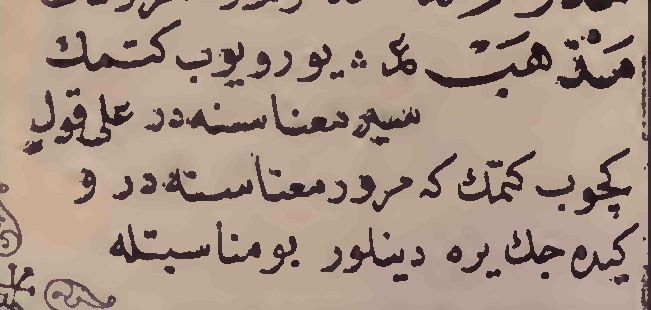 مَذْهَبْ ع يوروyوب كتمك
سير معناسنه در على قول
كچوب كتمك كه مرور معناسنه در و
كيده جك يره دينلور بو مناسبتله